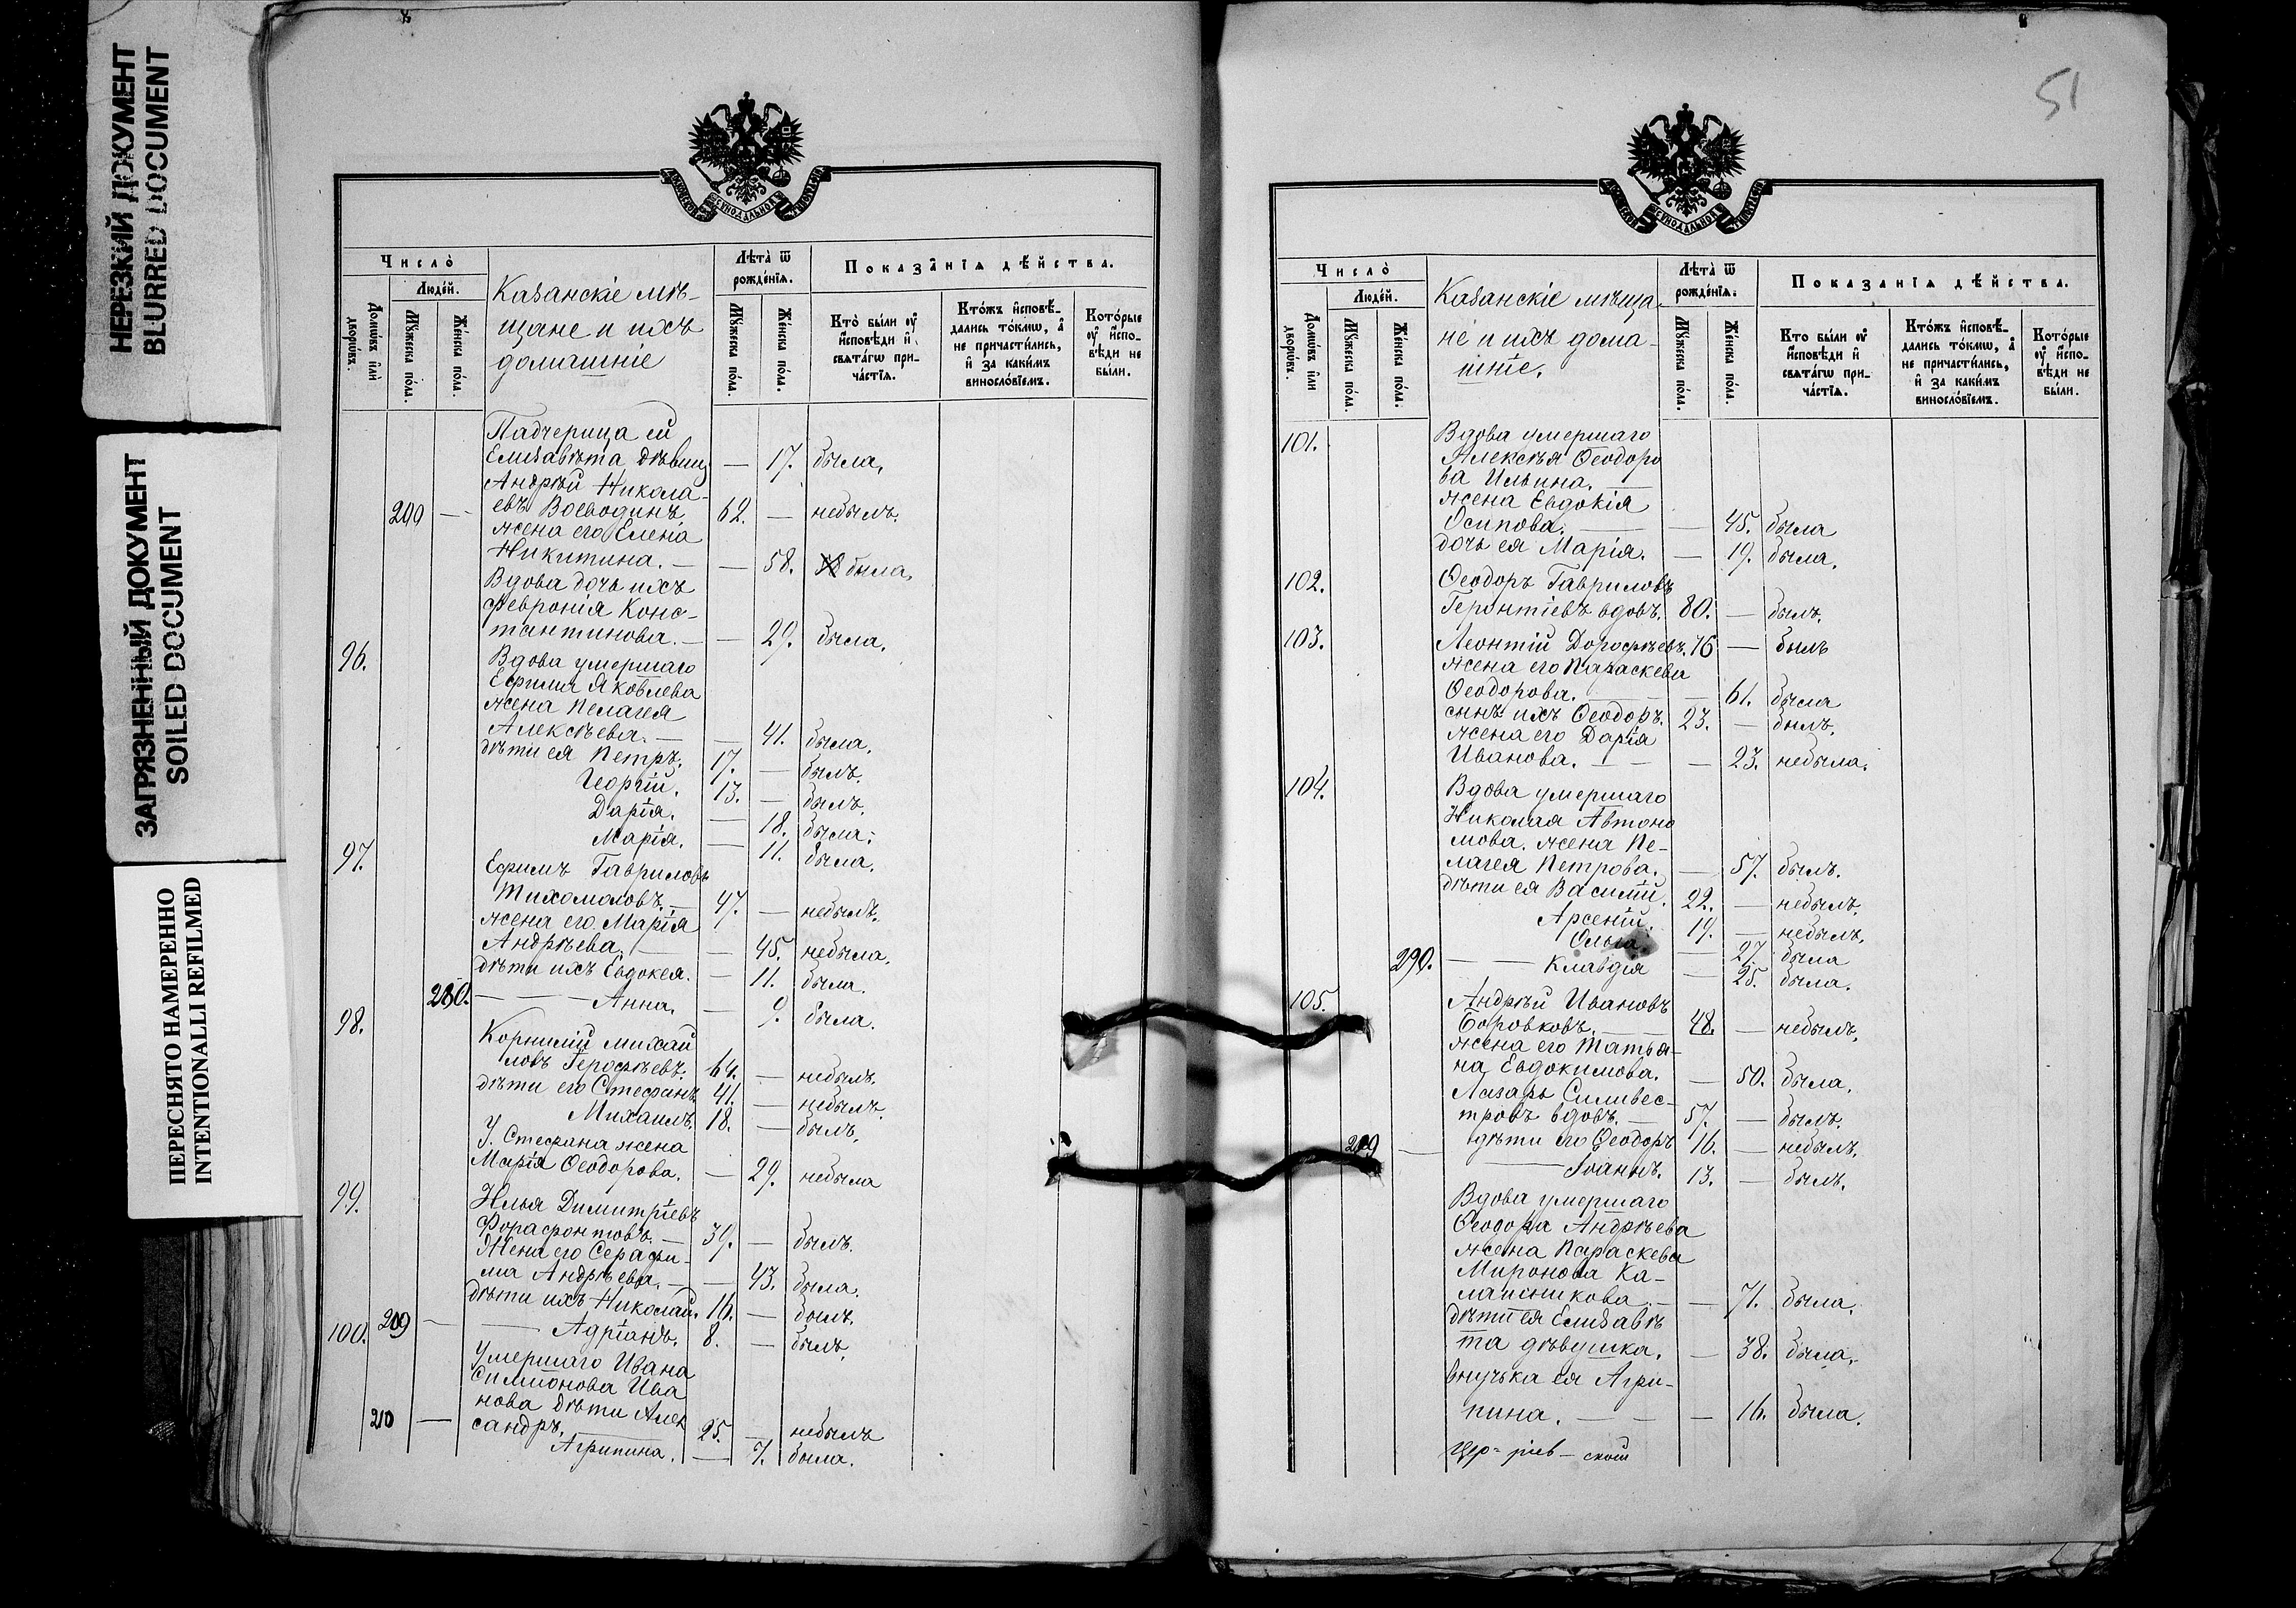 НЕРЕЗКИЙ ДОКУМЕНТ
BLURRED DOCUMENT
ЗАГРЯЗНЕННЫЙ ДОКУМЕНТ
SOILED DOCUMENT
ПЕРЕСНЯТО НАМЕРЕННО
INTENTIONALLI REFILMED
Число̀
Людéй.
Домѡ́въ и҆лѝ дворѡ́въ.
Мꙋ́жеска по́ла.
Же́нска по́ла.
Казанскіе мѣ-
щане и ихъ
домашніе
Лѣта̀ ѿ рожде́нїѧ.
Мꙋ́жеска по́ла.
Же́нска по́ла.
Показа̑нїѧ дѣ́йства.
Кто̀ бы́ли ᲂу҆ и҆сповѣ́ди и҆ свѧта́гѡ при-ча́стїѧ.
Кто́жъ и҆сповѣ́-дались то́кмѡ, а҆ не причасти́лись, и҆ за каки́мъ винословїемъ.
Кото́рые ᲂу҆ и҆спо-вѣ́ди не бы́ли.
Падчерица ей
Елизавѣта дѣвиц — 17. была,
Андрѣй Никола-
200 — евъ Воеводинъ 62. — небылъ.
жена его Елена
Никитина. — — 58. была,
Вдова дочь ихъ
Феврониія Конс-
тантинова. — — 29. была,
96. Вдова умершаго
Ефима Яковлева
жена Пелагея
Алексѣева. — — 41. была,
дѣти ея Петръ. 17. — былъ.
Георгій. 13. — былъ.
Дарія. — 18. была.
Марія. — 11. была.
97. Ефимъ Гавриловъ
Тихомоловъ. — 47. — небылъ.
жена его Марія
Андрѣева. — — 45. небыла.
дѣти ихъ Евдокея. — 11. была.
280. — — — Анна. — 9. была.
98. Корнилій михай
ловъ Герофѣевъ. 64. — небылъ.
дѣти его Стефанъ 41. — небылъ.
Михаилъ. 18. — былъ.
У Стефана жена
Марія Ѳеодорова. — 29. небыла
99. Илья Димитріевъ
Форафонтовъ. — 39. — былъ.
Жена его Серафи-
ма Андрѣева. — — 43. была.
дѣти ихъ Николай. 16. — былъ.
209 — — Адріанъ. 8. — былъ.
100. умершаго Ивана
Симионова Ива
нова дѣти Алек
210 — сандръ. 25. — небылъ
Агрипина. — 7. была.
51
Число̀
Людéй.
Домѡ́въ и҆лѝ дворѡ́въ.
Мꙋ́жеска по́ла.
Же́нска по́ла.
Казанскіе мѣща-
не и ихъ дома-
шніе.
Лѣта̀ ѿ рожде́нїѧ.
Мꙋ́жеска по́ла.
Же́нска по́ла.
Показа̑нїѧ дѣ́йства.
Кто бы́ли ᲂу҆ и҆сповѣ́ди и҆ свѧта́гѡ при-ча́стїѧ.
Кто́жъ и҆сповѣ́-дались то́кмѡ, а҆ не причасти́лись, и҆ за каки́мъ винословїемъ.
Кото́рые ᲂу҆ и҆спо-вѣ́ди не бы́ли.
101. Вдова умершаго
Алексѣя Ѳеодоро
ва Ильина. —
жена Евдокія
Осипова. — — 45. была
дочь ея Марія. — 19. была.
102. Ѳеодоръ Гавриловъ
Геронтіевъ вдовъ. 80. — былъ.
103. Леонтій Дорофѣевъ. 76 — былъ
жена его Параскева
Ѳеодорова. — — 61. была
сынъ ихъ Ѳеодоръ. 23. — былъ.
жена его Дарія
Иванова. — — — 23. небыла.
104. Вдова умершаго
Николая Автоно
мова. жена Пе-
лагея Петрова. — 57. былъ.
дѣти ея Василій. 22. — небылъ.
Арсеній. 19. — небылъ.
Ольга. — 27. была
290. — — Клавдія — 25. была.
105. Андрѣй Ивановъ
Боровковъ. — — 48. — небылъ.
жена его Татья-
на Евдокимова. — 50. была.
Лазарь Силивес-
тровъ вдовъ. — 57. — былъ.
219 — дѣти его Ѳеодоръ 16. — небылъ.
— Іоаннъ. 13. — былъ.
Вдова умершаго
Ѳеодора Андрѣева
жена Параскева
Миронова Ка-
лашникова. — — 71. была.
дѣти ея Елизавѣ
та дѣвушка. — 38. была.
внучька ея Агри-
пина. — — — 16. была.